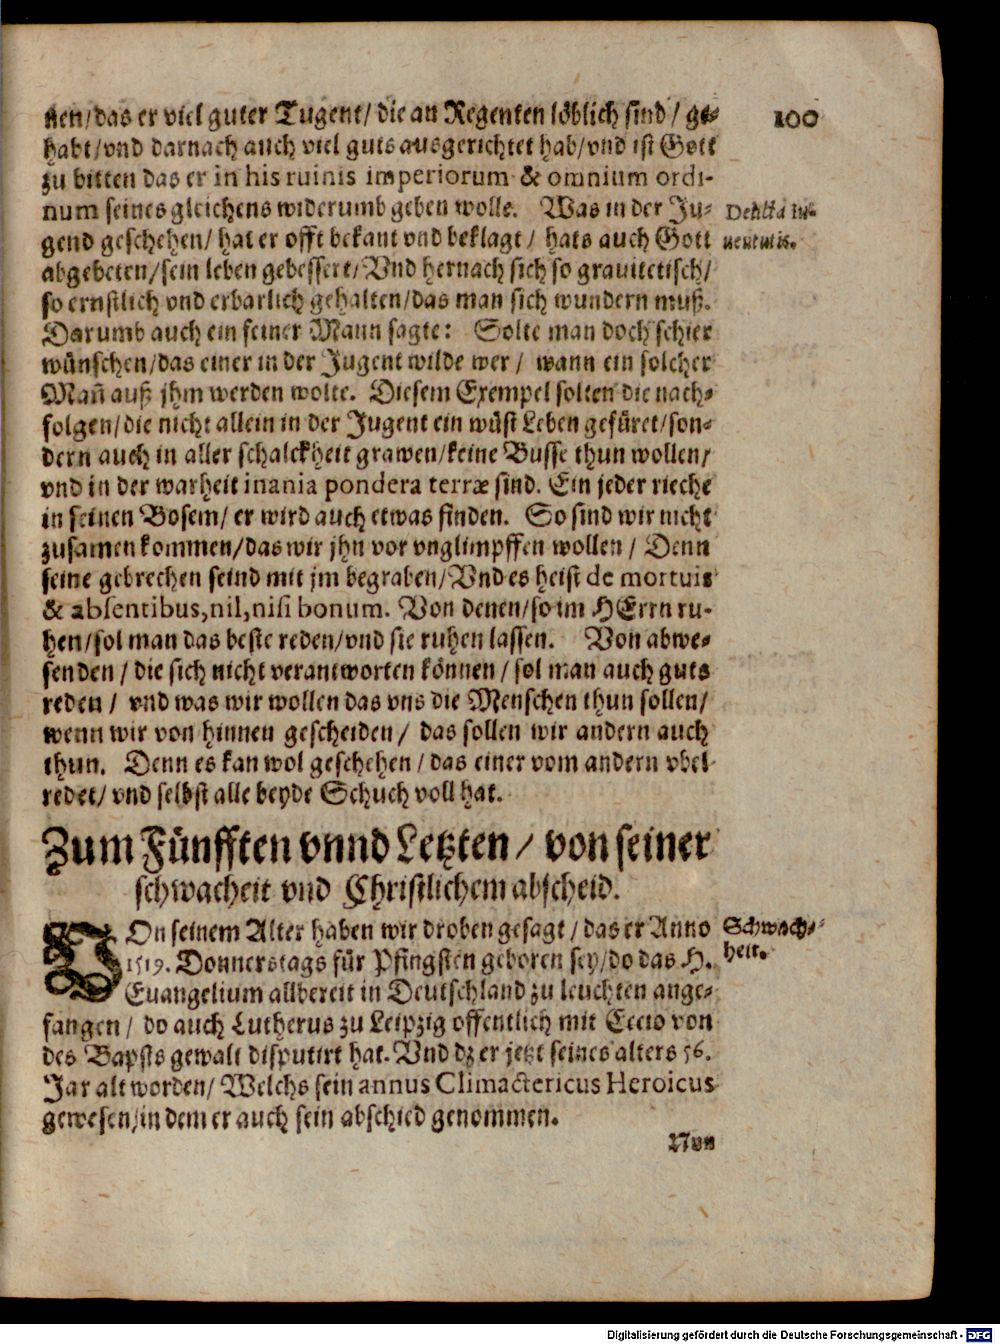 nen/das er viel guter Tugent/ die an Regenten löblich sind / ge-
100
habt/vnd darnach auch viel guts ausgerichtet hab/vnd ist Gott
zu bitten das er in his ruinis imperiorum & omnium ordi-
num seines gleichens widerumb geben wolle. Was in der Ju-
Delicta iu-
gend geschehen/ hat er offt bekant vnd beklagt / hats auch Gott
uentutis.
abgebeten/sein leben gebessert/Vnd hernach sich so grauitetisch/
so ernstlich vnd erbarlich gehalten/das man sich wundern muß.
Darumb auch ein feiner Mann sagte: Solte man doch schier
wünschen/das einer in der Jugent wilde wer / wann ein solcher
Mañ auß jhm werden wolte. Diesem Exempel solten die nach-
folgen/die nicht allein in der Jugent ein wüst Leben gefüret/son-
dern auch in aller schalckheit grawen/keine Busse thun wollen/
vnd in der warheit inania pondera terræ sind. Ein jeder rieche
in seinen Bosem/ er wird auch etwas finden. So sind wir nicht
zusamen kommen/das wir jhn vor vnglimpffen wollen / Denn
seine gebrechen seind mit jm begraben/Vnd es heist de mortuis
& absentibus, nil, nisi bonum. Von denen/so im HErrn ru-
hen/sol man das beste reden/vnd sie ruhen lassen. Von abwe-
senden / die sich nicht verantworten können / sol man auch guts
reden / vnd was wir wollen das vns die Menschen thun sollen/
wenn wir von hinnen gescheiden / das sollen wir andern auch
thun. Denn es kan wol geschehen / das einer vom andern vbel
redet/ vnd selbst alle beyde Schuch voll hat.
Zum Fünfften vnnd Letzten / von seiner
schwacheit vnd Christlichem abscheid.
VOn seinem Alter haben wir droben gesagt / das er Anno
Schwach-
1519. Donnerstags für Pfingsten geboren sey/do das H.
heit.
Euangelium allbereit in Deutschland zu leuchten ange-
fangen / do auch Lutherus zu Leipzig offentlich mit Eccio von
des Bapsts gewalt disputirt hat. Vnd dz er jetzt seines alters 56.
Jar alt worden/ Welchs sein annus Climactericus Heroicus
gewesen/in dem er auch sein abschied genommen.
Nun
Digitalisierung gefördert durch die Deutsche Forschungsgemeinschaft - DFG